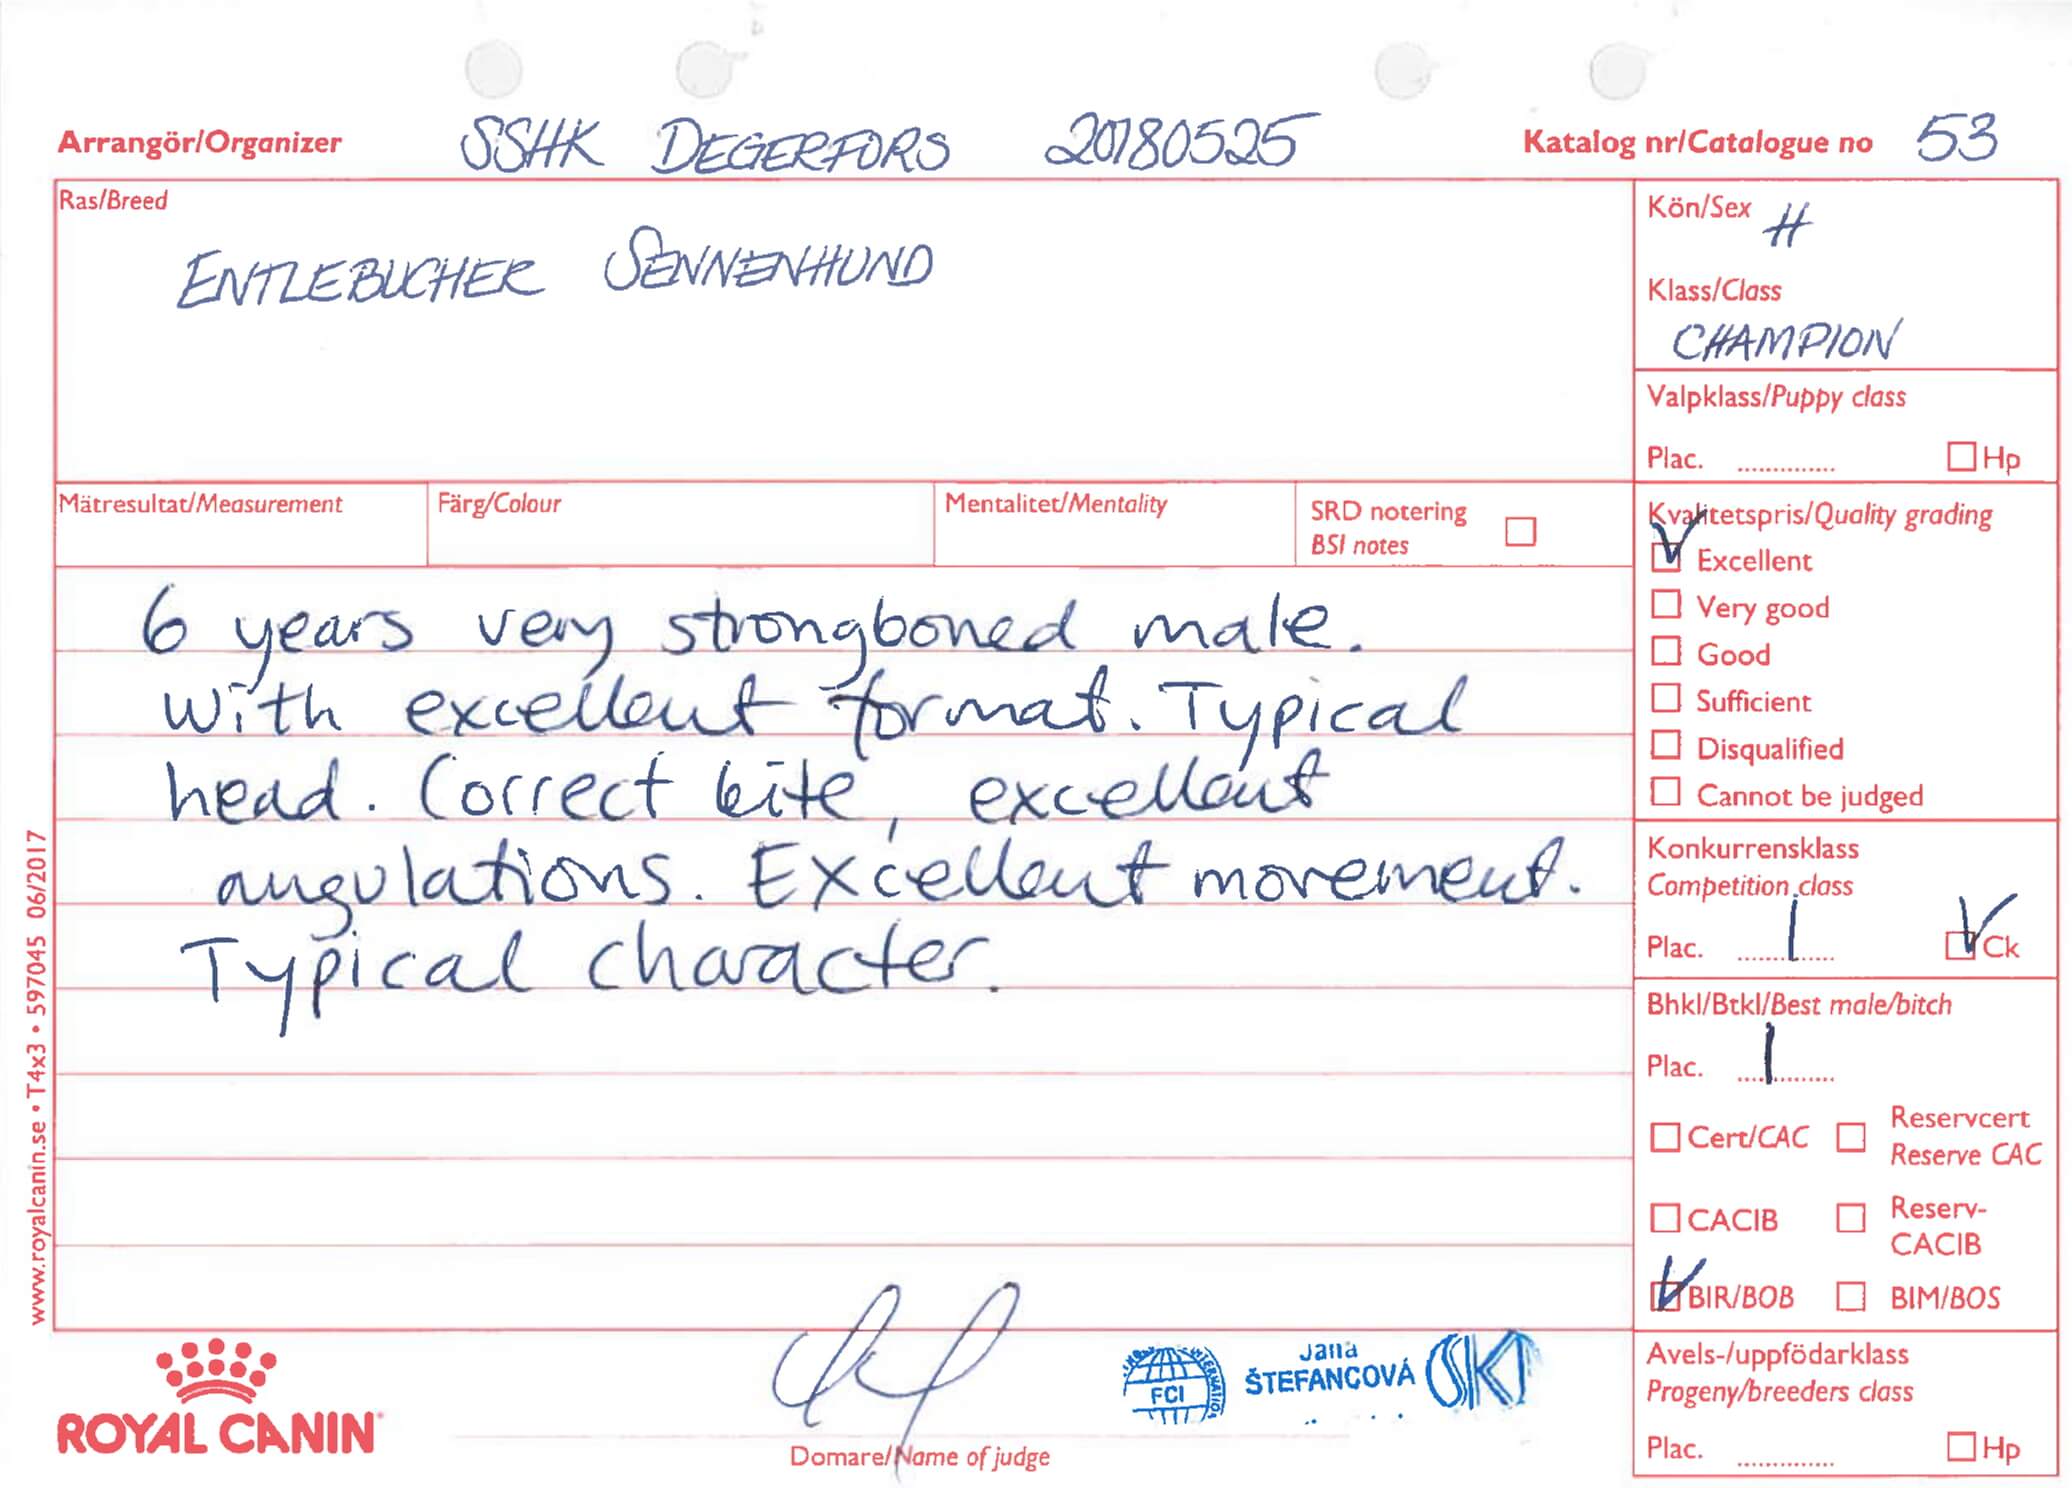 Arrangör/Organizer SSHK DEGERFORS 20180525 Katalog nr/Catalogue no 53
Ras/Breed
ENTLEBUCHER SENNENHUND
Kön/Sex H
Klass/Class
CHAMPION
Valpklass/Puppy class
Plac. .............. Hp
Mätresultat/Measurement Färg/Colour Mentalitet/Mentality SRD notering
BSI notes
6 years very strongboned male.
With excellent format. Typical
head. Correct bite, excellent
angulations. Excellent movement.
Typical character.
Kvalitetspris/Quality grading
Excellent
Very good
Good
Sufficient
Disqualified
Cannot be judged
Konkurrensklass
Competition class
Plac. 1 Ck
Bhkl/Btkl/Best male/bitch
Plac. 1
Cert/CAC Reservcert
Reserve CAC
CACIB Reserv-
CACIB
BIR/BOB BIM/BOS
Avels-/uppfödarklass
Progeny/breeders class
Plac. .............. Hp
www.royalcanin.se • T4x3 • 597045 06/2017
ROYAL CANIN
Domare/Name of judge
FCI
Jana
ŠTEFANCOVÁ